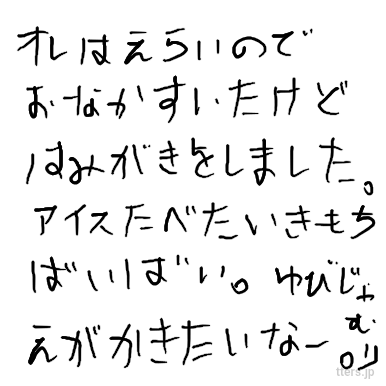 オレはえらいので
おなかすいたけど
はみがきをしました。
アイスたべたいきもち
ばいばい。ゆびじゃ
えがかきたいなーむり
tters.jp